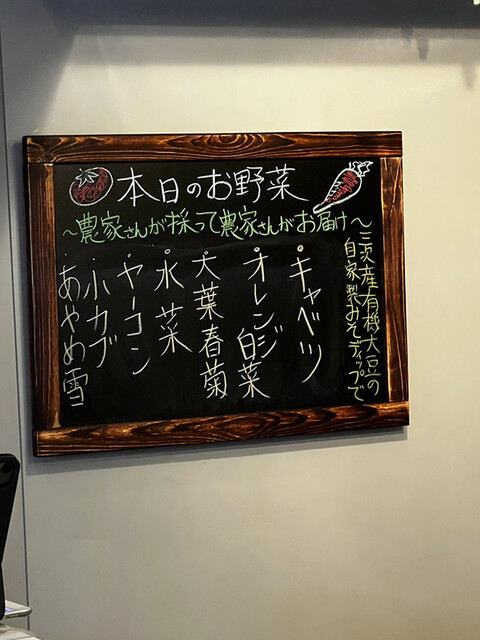 本日のお野菜
～農家さんが採って農家さんがお届け～
三次産有機大豆の
自家製みそディップで
・キャベツ
・オレンジ白菜
・大葉春菊
・水菜
・ヤーコン
・小カブ
・あやめ雪